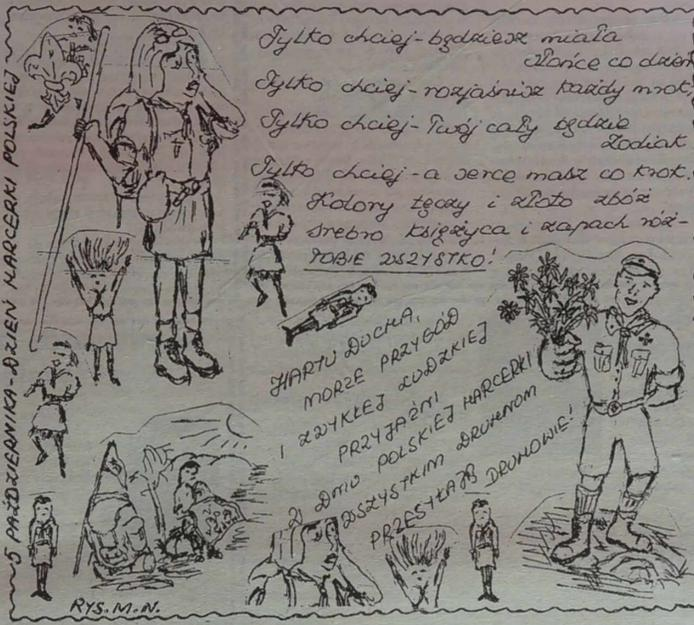 5 PAŹDZIERNIKA - DZIEŃ HARCERKI POLSKIEJ
Tylko chciej - będziesz miała
słońce co dzień
Tylko chciej - rozjaśnisz każdy mrok,
Tylko chciej - Twój cały będzie
Zodiak
Tylko chciej - a serce masz co krok.
Kolory tęczy i złoto zbóż
srebro księżyca i zapach róż -
TOBIE WSZYSTKO!
HARTU DUCHA,
MORZE PRZYGÓD
I ZWYKŁEJ LUDZKIEJ
PRZYJAŹNI
W DNIU POLSKIEJ HARCERKI
WSZYSTKIM DRUHNOM
PRZESYŁAJĄ DRUHOWIE!
RYS. M. N.